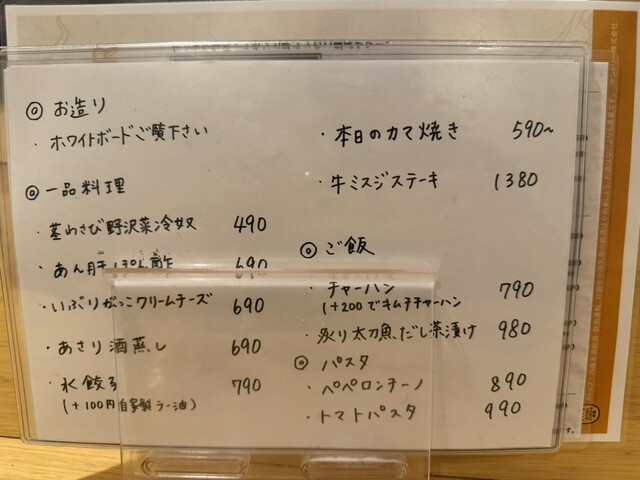 ◎ お造り
・ホワイトボードご覧下さい
◎ 一品料理
・茎わさび野沢菜冷奴 490
・あん肝ぽん酢 690
・いぶりがっこクリームチーズ 690
・あさり酒蒸し 690
・水餃子 790
(+100円自家製ラー油)
・本日のカマ焼き 590~
・牛ミスジステーキ 1380
◎ ご飯
・チャーハン 790
(+200でキムチチャーハン
・炙り太刀魚だし茶漬け 980
◎ パスタ
・ペペロンチーノ 890
・トマトパスタ 990